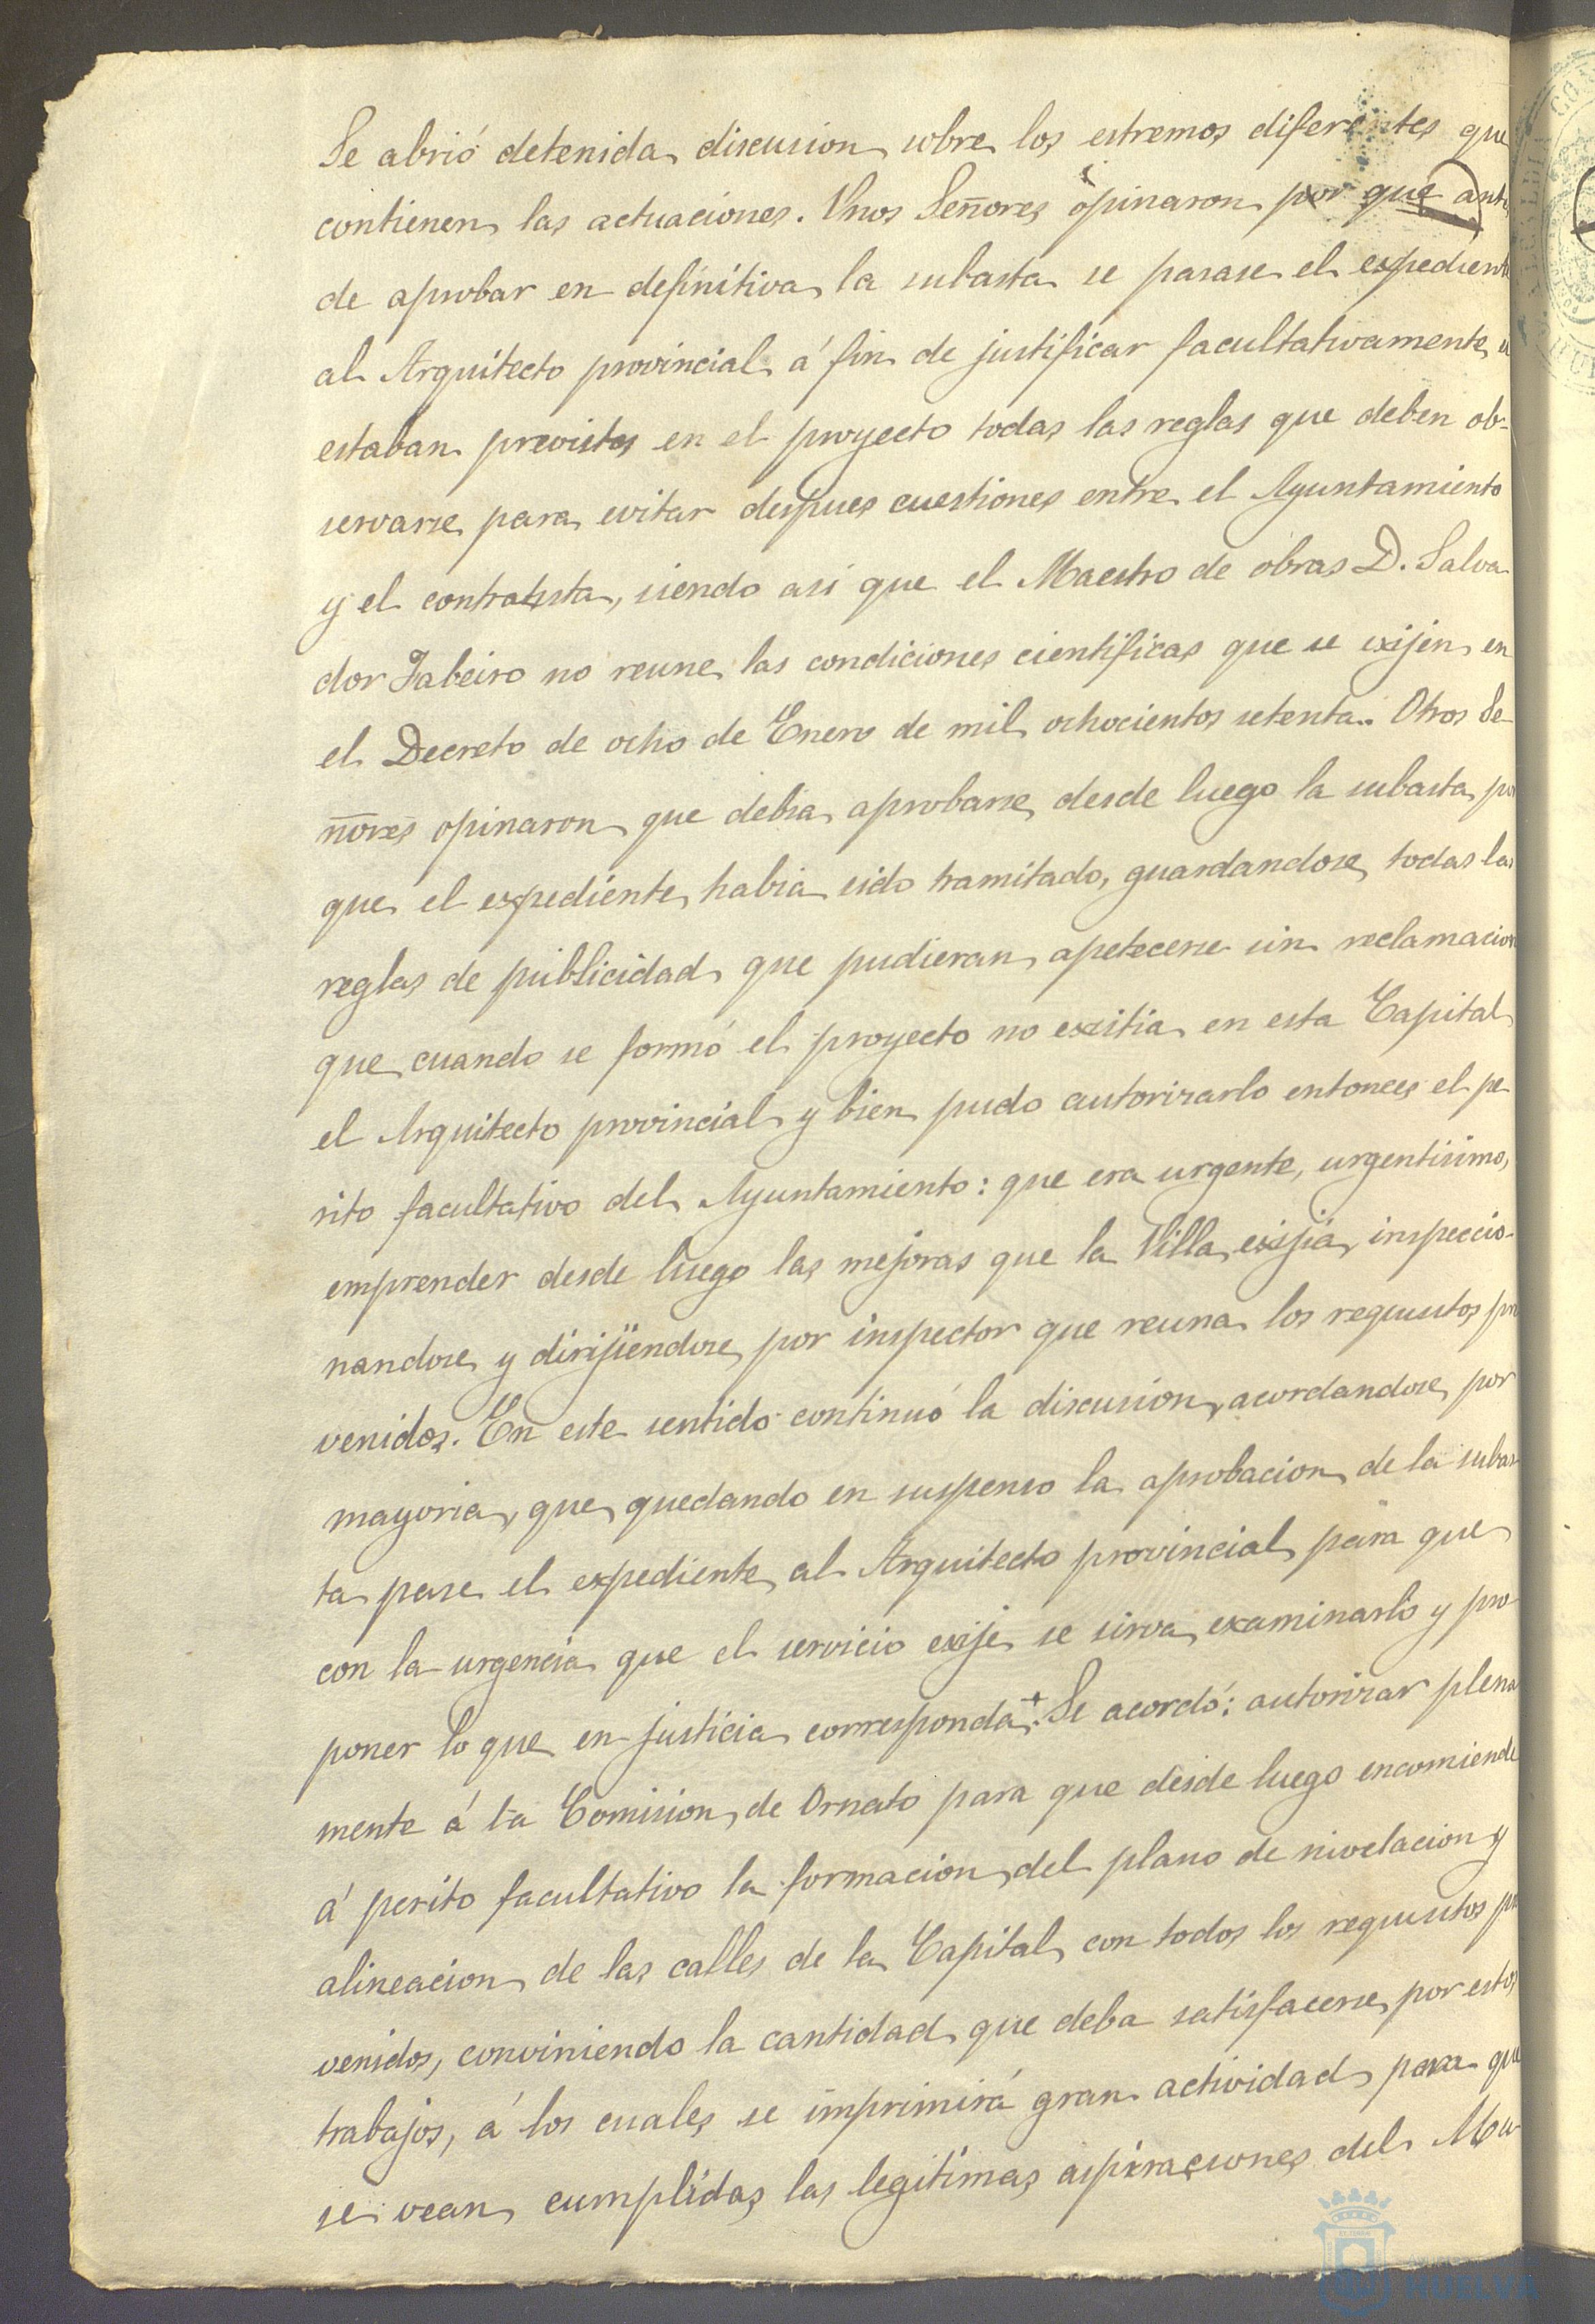 Se abrió detenida discusion sobre los estremos diferentes que
contienen las actuaciones. Unos Señores opinaron por que antes
de aprobar en definitiva la subasta se pasase el expediente
al Arquitecto provincial á fin de justificar facultativamente si
estaban previstas en el proyecto todas las reglas que deben ob-
servarse para evitar despues cuestiones entre el Ayuntamiento
y el contratista, siendo asi que el Maestro de obras D. Salva
dor Tabeiro no reune las condiciones cientificas que se exijen en
el Decreto de ocho de Enero de mil ochocientos setenta. Otros Se-
ñores opinaron que debia aprobarse desde luego la subasta por
que el espediente habia sido tramitado, guardandose todas las
reglas de publicidad que pudieran apetecerse sin reclamacion
que cuando se formó el proyecto no exsitia en esta Capital
el Arquitecto provincial y bien pudo autorizarlo entonces el pe
rito facultativo del Ayuntamiento: que era urgente, urgentisimo,
emprender desde luego las mejoras que la Villa exijia, inspeccio-
nandose y dirijiendose por inspector que reuna los requisitos pre
venidos. En este sentido continuó la discusion, acordandose por
mayoria, que quedando en suspenso la aprobacion de la subas
ta pase el expediente al Arquitecto provincial para que
con la urgencia que el servicio exije se sirva examinarlo y pro-
poner lo que en justicia corresponda.+ Se acordó: autorizar plena
mente á la Comision de Ornato para que desde luego encomiende
á perito facultativo la formacion del plano de nivelacion y
alineacion de las calles de la Capital con todos los requisitos pre
venidos, conviniendo la cantidad que deba satisfacerse por estos
trabajos, á los cuales se imprimirá gran actividad para que
se vean cumplidas las legitimas aspiraciones del Mu-
HUELVA